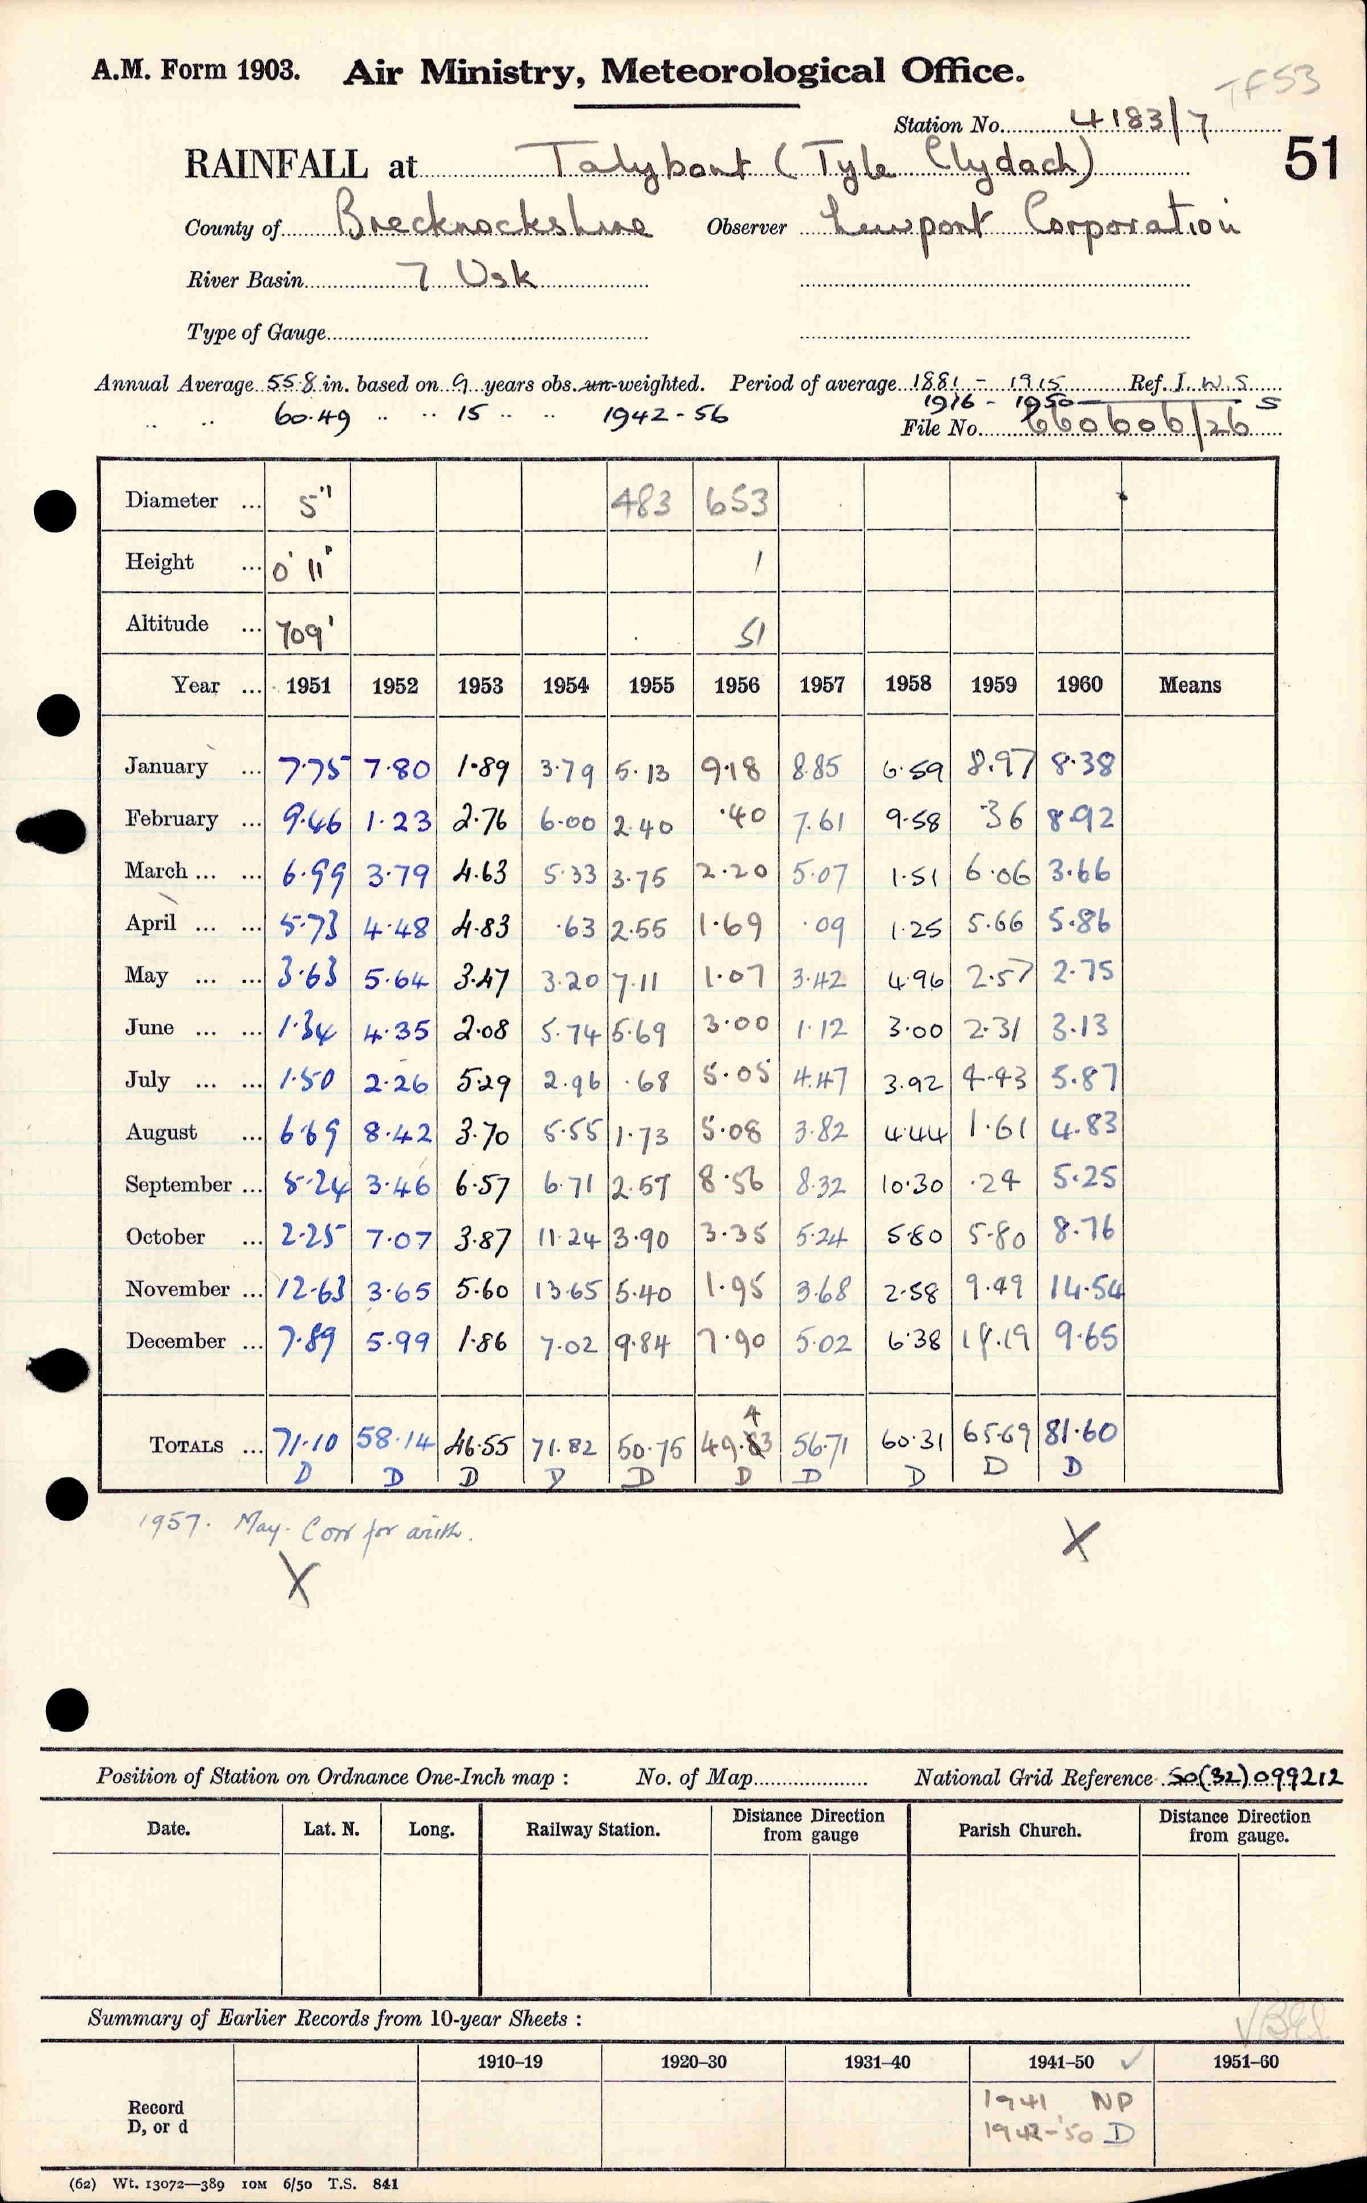 TF53
A.M. Form 1903. Air Ministry, Meteorological Office.
Station No. 4183/7
RAINFALL at Talybont (Tyle Clydach) 51
County of Brecknockshire Observer Newport Corporation
River Basin 7 Usk
Type of Gauge
Annual Average 55.8 in. based on 9 years obs. un-weighted. Period of average 1881 - 1915 Ref. I.W.S
1916 - 1950 S
" " 60.49 " " 15 " " 1942-56 File No. 660606/26
Diameter ... 5" 483 653
Height ... 0' 11" 1
Altitude ... 709' 51
Year ... 1951 1952 1953 1954 1955 1956 1957 1958 1959 1960 Means
January ... 7.75 7.80 1.89 3.79 5.13 9.18 8.85 6.59 8.97 8.38
February ... 9.46 1.23 2.76 6.00 2.40 .40 7.61 9.58 .36 8.92
March ... ... 6.99 3.79 4.63 5.33 3.75 2.20 5.07 1.51 6.06 3.66
April ... ... 5.73 4.48 4.83 .63 2.55 1.69 .09 1.25 5.66 5.86
May ... ... 3.63 5.64 3.47 3.20 7.11 1.07 3.42 4.96 2.57 2.75
June ... ... 1.34 4.35 2.08 5.74 5.69 3.00 1.12 3.00 2.31 3.13
July ... ... 1.50 2.26 5.29 2.96 .68 5.05 4.47 3.92 4.43 5.87
August ... 6.69 8.42 3.70 5.55 1.73 5.08 3.82 4.44 1.61 4.83
September ... 5.24 3.46 6.57 6.71 2.57 8.56 8.32 10.30 .24 5.25
October ... 2.25 7.07 3.87 11.24 3.90 3.35 5.24 5.80 5.80 8.76
November ... 12.63 3.65 5.60 13.65 5.40 1.95 3.68 2.58 9.49 14.54
December ... 7.89 5.99 1.86 7.02 9.84 7.90 5.02 6.38 18.19 9.65
4
TOTALS ... 71.10 58.14 46.55 71.82 50.75 49.83 56.71 60.31 65.69 81.60
D D D D D D D D D D
1957. May. Corr for arith.
X X
Position of Station on Ordnance One-Inch map : No. of Map National Grid Reference SO(32)099212
Date. Lat. N. Long. Railway Station. Distance from gauge Direction Parish Church. Distance from gauge. Direction
Summary of Earlier Records from 10-year Sheets :
1910–19 1920–30 1931–40 1941–50 ✓ 1951–60
Record 1941 NP
D, or d 1942-'50 D
(62) Wt. 13072—389 10M 6/50 T.S. 841